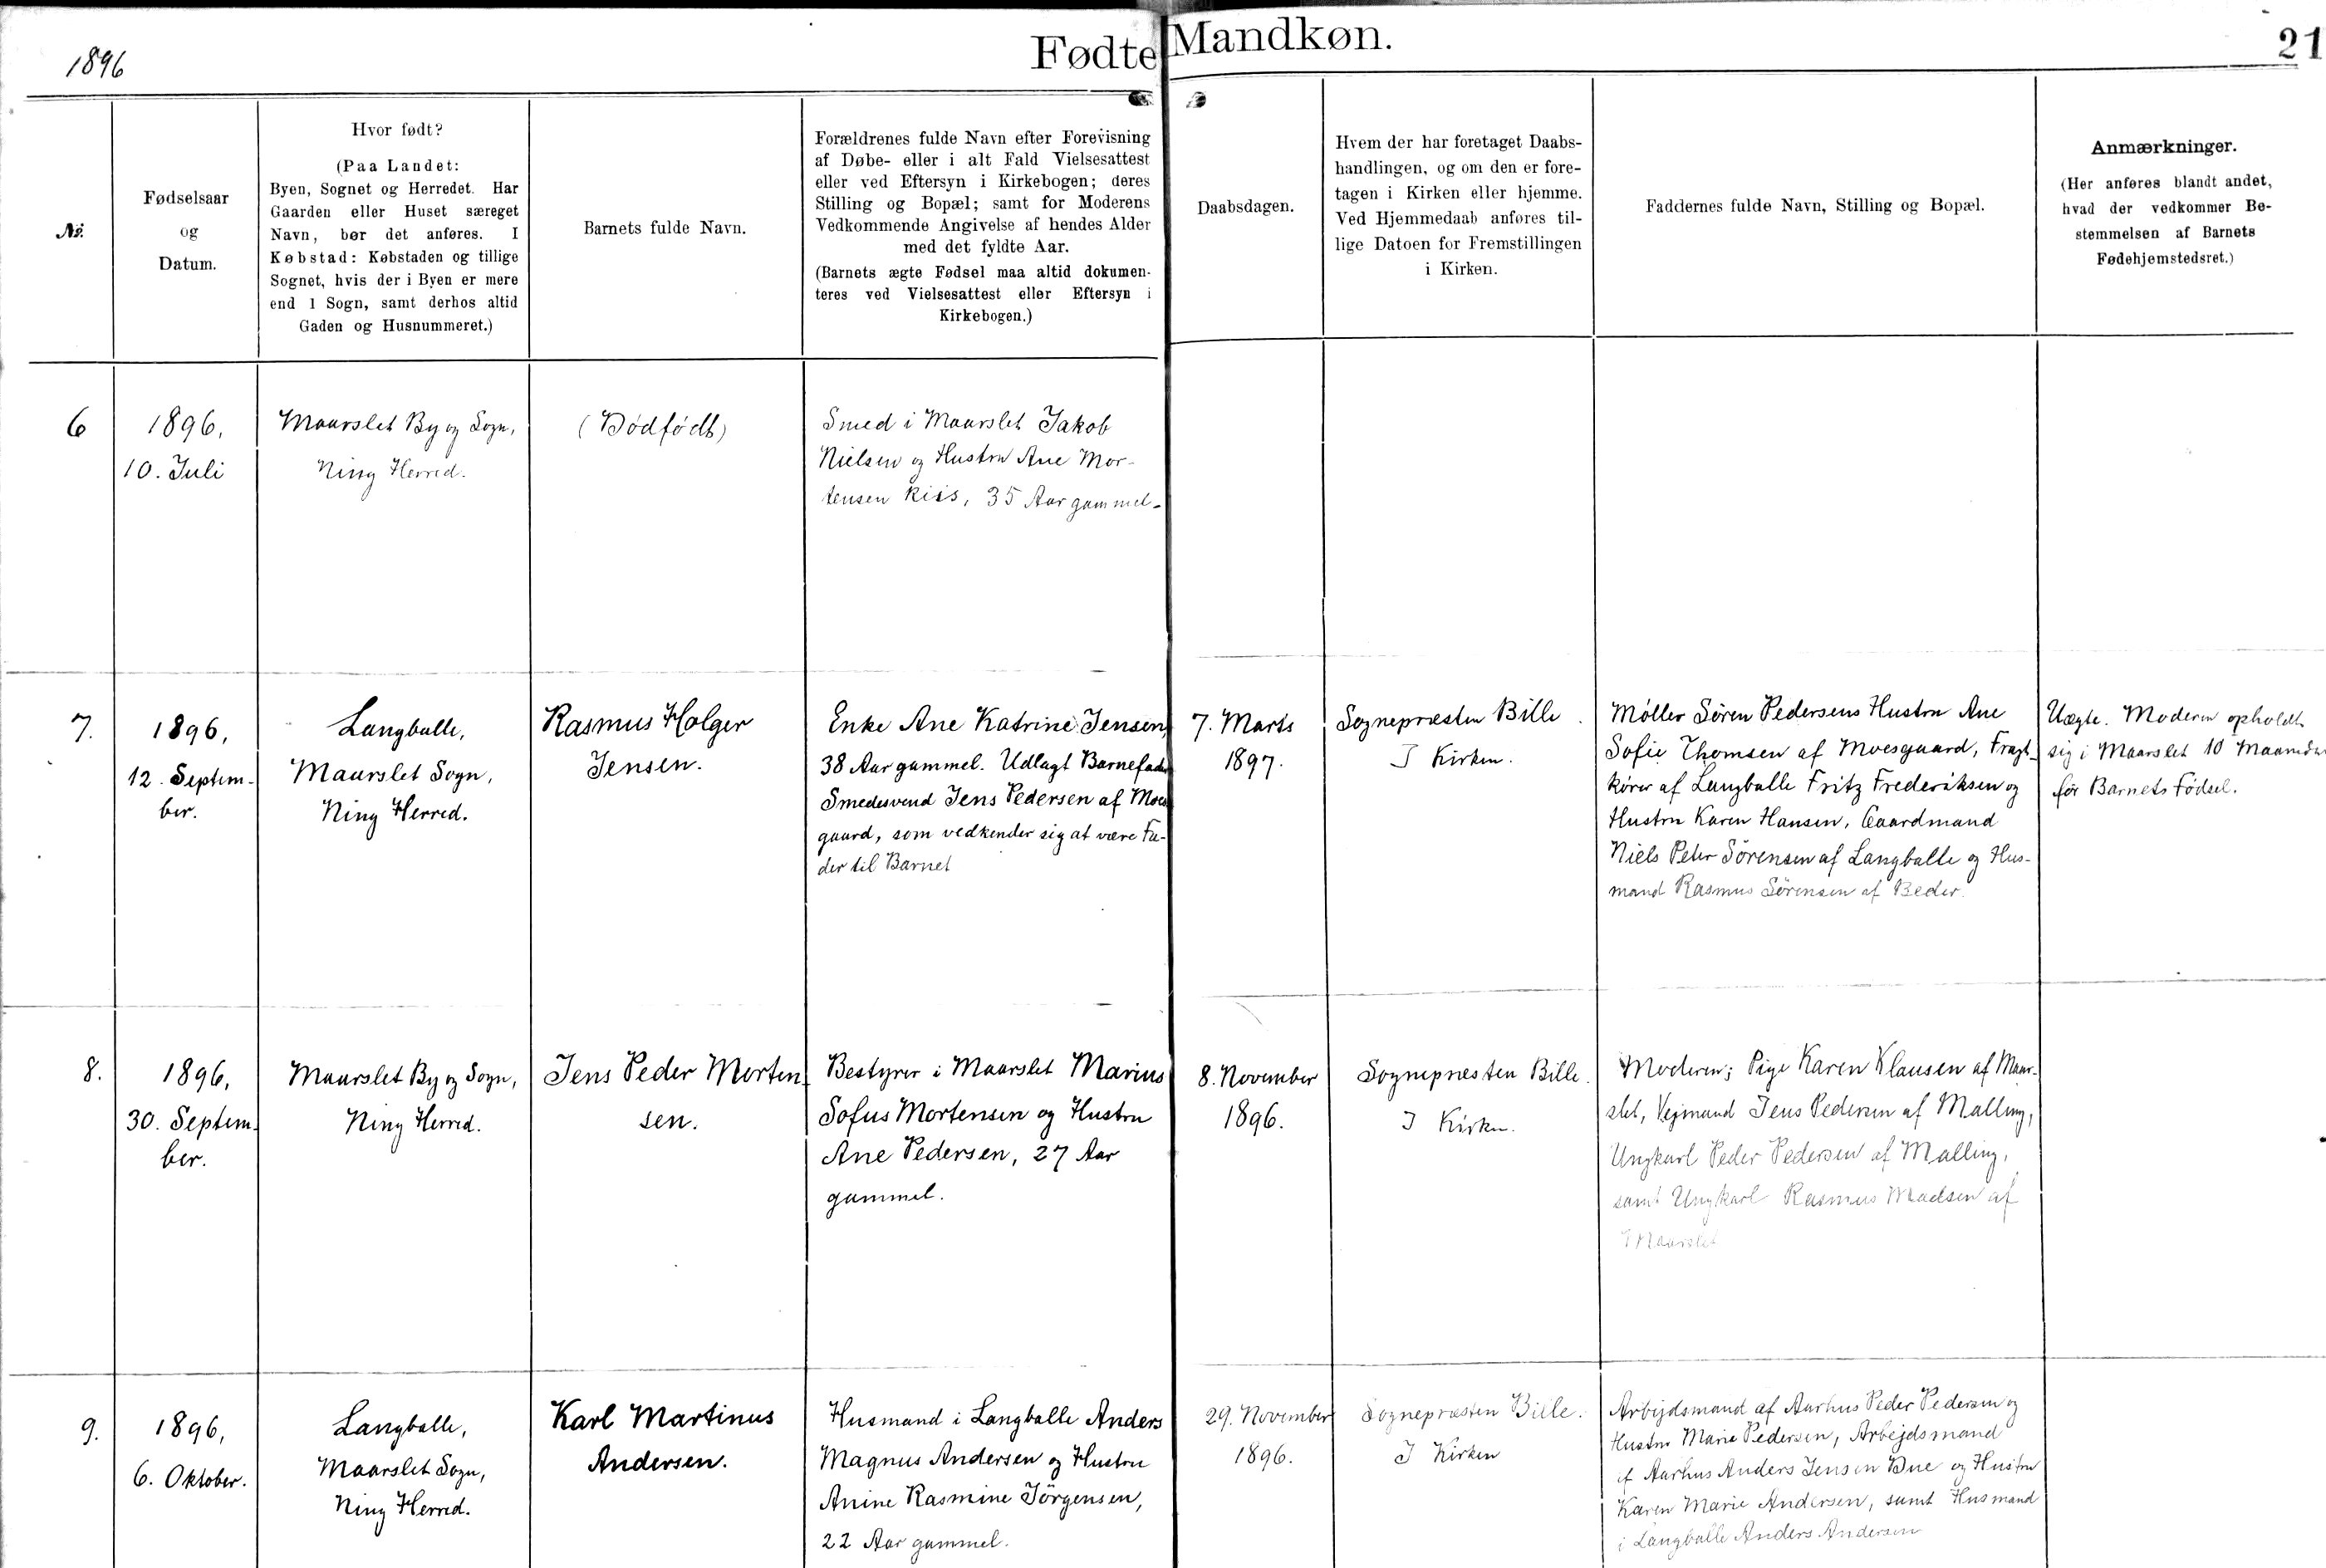 1896
Fødte Mandkøn.
21
№.
Fødselsaar
og
Datum.
Hvor født?
(Paa Landet:
Byen, Sognet og Herredet. Har
Gaarden eller Huset særeget
Navn, bør det anføres. I
Købstad: Købstaden og tillige
Sognet, hvis der i Byen er mere
end 1 Sogn, samt derhos altid
Gaden og Husnummeret.)
Barnets fulde Navn.
Forældrenes fulde Navn efter Forevisning
af Døbe- eller i alt Fald Vielsesattest
eller ved Eftersyn i Kirkebogen; deres
Stilling og Bopæl; samt for Moderens
Vedkommende Angivelse af hendes Alder
med det fyldte Aar.
(Barnets ægte Fødsel maa altid dokumen-
teres ved Vielsesattest eller Eftersyn i
Kirkebogen.)
Daabsdagen.
Hvem der har foretaget Daabs-
handlingen, og om den er fore-
tagen i Kirken eller hjemme.
Ved Hjemmedaab anføres til-
lige Datoen for Fremstillingen
i Kirken.
Faddernes fulde Navn, Stilling og Bopæl.
Anmærkninger.
(Her anføres blandt andet,
hvad der vedkommer Be-
stemmelsen af Barnets
Fødehjemstedsret.)
6
1896,
10. Juli
Maarslet By og Sogn,
Ning Herred.
(Dødfødt)
Smed i Maarslet Jakob
Nielsen og Hustru Ane Mor-
tensen Riis, 35 Aar gammel-
7.
1896,
12. Septem-
ber.
Langballe,
Maarslet Sogn,
Ning Herred.
Rasmus Holger
Jensen.
Enke Ane Katrine Jensen,
38 Aar gammel. Udlagt Barnefader
Smedesvend Jens Pedersen af Moes
gaard, som vedkender sig at være Fa-
der til Barnet
7. Marts
1897.
Sognepræsten Bille.
I Kirken.
Møller Sören Pedersens Hustru Ane
Sofie Thomsen af Moesgaard, Fragt-
kører af Langballe Fritz Frederiksen og
Hustru Karen Hansen, Gaardmand
Niels Peter Sörensen af Langballe og Hus-
mand Rasmus Sörensen af Beder.
Uægte. Moderen opholdt
sig i Maarslet 10 Maaneder
før Barnets Födsel.
8.
1896,
30. Septem-
ber.
Maarslet By og Sogn,
Ning Herred.
Jens Peder Morten-
sen.
Bestyrer i Maarslet Marius
Sofus Mortensen og Hustru
Ane Pedersen, 27 Aar
gammel.
8. November
1896.
Sognepræsten Bille.
I Kirken.
Moderen; Pige Karen Klausen af Maar-
slet, Vejmand Jens Pedersen af Malling,
Ungkarl Peder Pedersen af Malling,
samt Ungkarl Rasmus Madsen af
Maarslet
9.
1896,
6. Oktober.
Langballe,
Maarslet Sogn,
Ning Herred.
Karl Martinus
Andersen.
Husmand i Langballe Anders
Magnus Andersen og Hustru
Anine Rasmine Jörgensen,
22 Aar gammel.
29. November
1896.
Sognepræsten Bille.
I Kirken
Arbejdsmand af Aarhus Peder Pedersen og
Hustru Marie Pedersen, Arbejdsmand
af Aarhus Anders Jensen Due og Hustru
Karen Marie Andersen, samt Husmand
i Langballe Anders Andersen